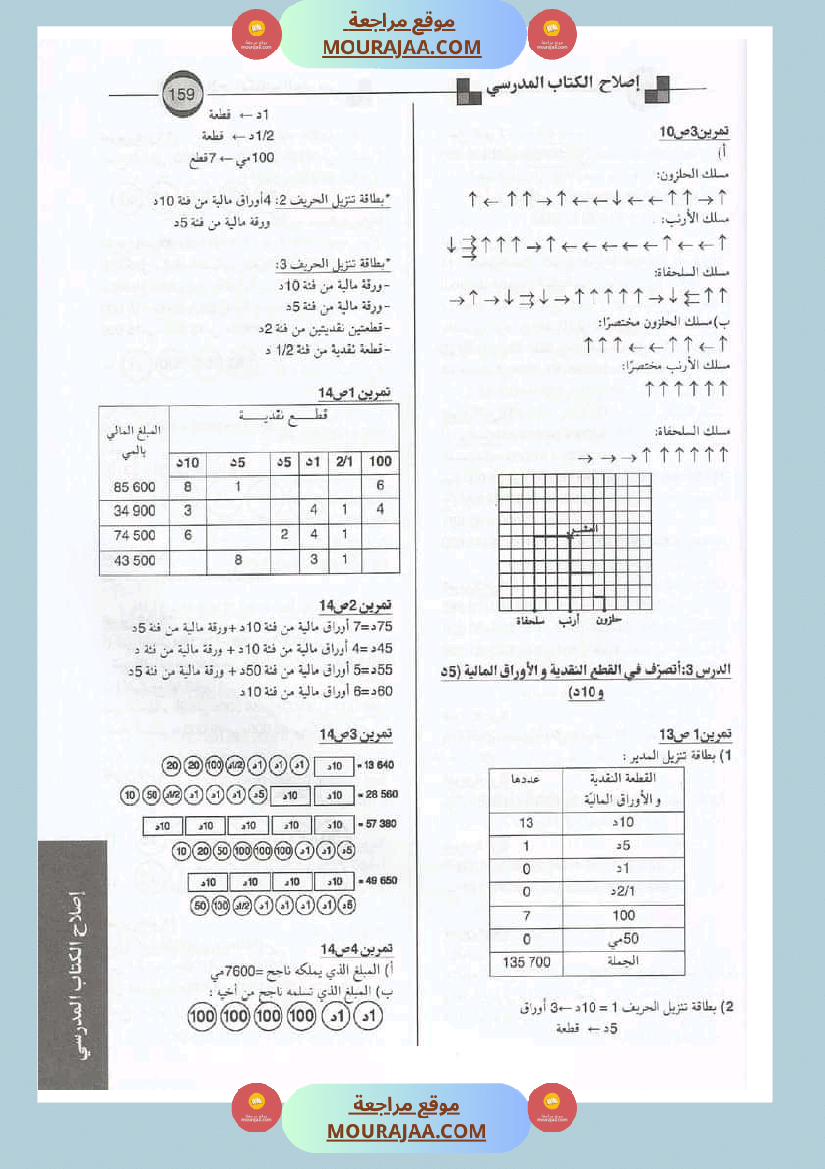 موقع مراجعة
MOURAJAA.COM
إصلاح الكتاب المدرسي
159
تمرين3ص10
أ)
مسلك الحلزون:
↑ ← ↑ ↑ → ↑ ← ← ↓ ← ← ↑ ↑ → ↑
مسلك الأرنب:
مسلك السلحفاة:
ب)مسلك الحلزون مختصرًا:
↑ ↑ ↑ ← ← ↑ ↑ ← ↑
مسلك الأرنب مختصرًا:
↑ ↑ ↑ ↑ ↑ ↑
مسلك السلحفاة:
→ → → ↑ ↑ ↑ ↑ ↑ ↑
العشب
سلحفاة أرنب حلزون
الدرس 3:أتصرّف في القطع النقدية و الأوراق المالية (5د
و10د)
تمرين1 ص13
1) بطاقة تنزيل المدير :
القطعة النقدية و الأوراق الماليّة عددها
10د 13
5د 1
1د 0
2/1د 0
100 7
50مي 0
الجملة 135 700
2) بطاقة تنزيل الحريف 1 = 10د ←3 أوراق
5د ← قطعة
1د ← قطعة
1/2د ← قطعة
100مي ← 7قطع
*بطاقة تنزيل الحريف 2: 4أوراق مالية من فئة 10د
ورقة مالية من فئة 5د
*بطاقة تنزيل الحريف 3:
-ورقة مالية من فئة 10د
-ورقة مالية من فئة 5د
-قطعتين نقديتين من فئة 2د
-قطعة نقدية من فئة 1/2 د
تمرين 1ص14
المبلغ المالي بالمي قطــع نقديــــة
10د 5د 5د 1د 2/1 100
85 600 8 1 6
34 900 3 4 1 4
74 500 6 2 4 1
43 500 8 3 1
تمرين 2ص14
75د=7 أوراق مالية من فئة 10د+ورقة مالية من فئة 5د
45د=4 أوراق مالية من فئة 10د+ ورقة مالية من فئة د
55د=5 أوراق مالية من فئة 50د+ ورقة مالية من فئة 5د
60د=6 أوراق مالية من فئة 10د
تمرين 3ص14
20 20 100 1/2د 1د 1د 1د 10د = 13 640
10 50 1/2د 1د 1د 1د 5د 10د 10د = 28 560
10د 10د 10د 10د 10د = 57 380
10 20 50 100 100 100 1د 1د 5د
10د 10د 10د 10د = 49 650
50 100 1/2د 1د 1د 1د 1د 5د
تمرين 4ص14
أ) المبلغ الذي يملكه ناجح =7600مي
ب) المبلغ الذي تسلمه ناجح من أخيه :
100 100 100 100 1د 1د
إصلاح الكتاب المدرسي
موقع مراجعة
MOURAJAA.COM